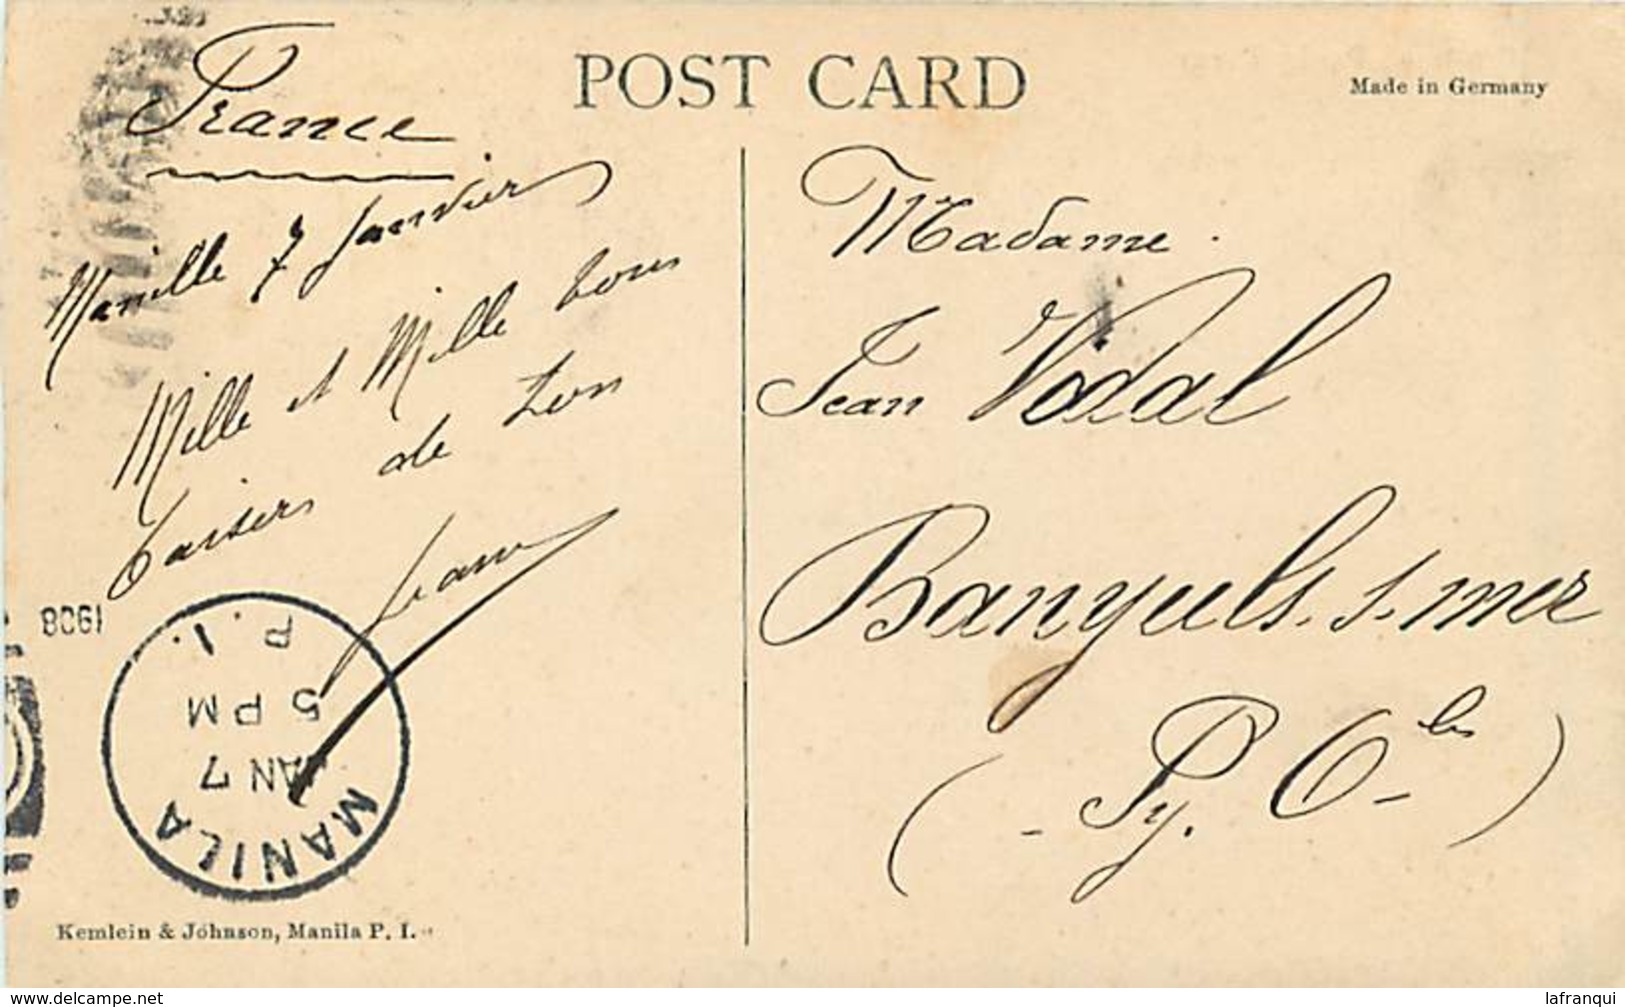 POST CARD
Made in Germany
France
Manille 7 Janvier
Mille et Mille bons
baisers de ton
Jean
Madame
Jean Vidal
Banyuls. s. mer
(- Py. Oles -)
1908
MANILA
JAN 7
5 PM
P. I.
Kemlein & Johnson, Manila P. I.
lafranqui
www.delcampe.net